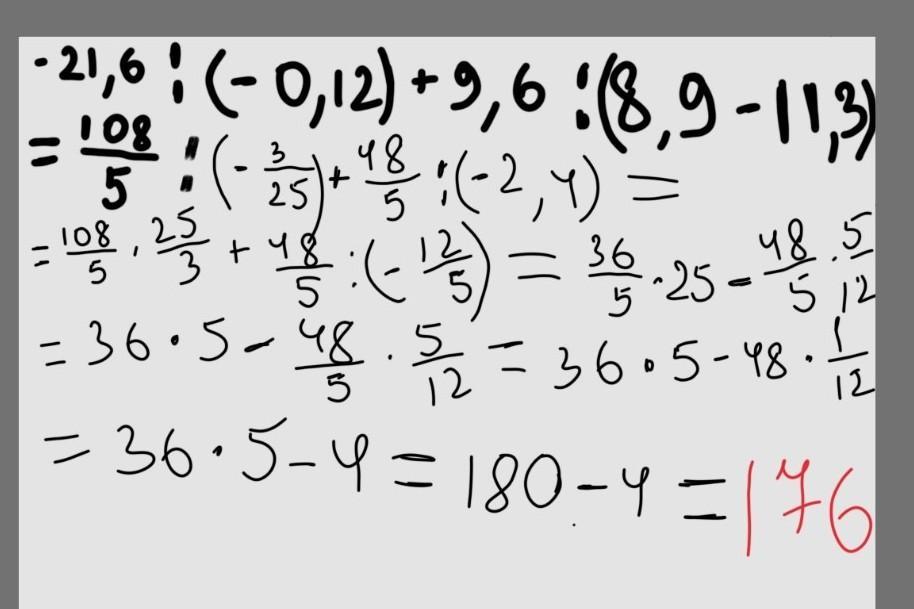 -21,6 : (-0,12) + 9,6 : (8,9 - 11,3)
= 108/5 : (-3/25) + 48/5 : (-2,4) =
= 108/5 · 25/3 + 48/5 : (-12/5) = 36/5 · 25 - 48/5 · 5/12
= 36 · 5 - 48/5 · 5/12 = 36 · 5 - 48 · 1/12
= 36 · 5 - 4 = 180 - 4 = 176